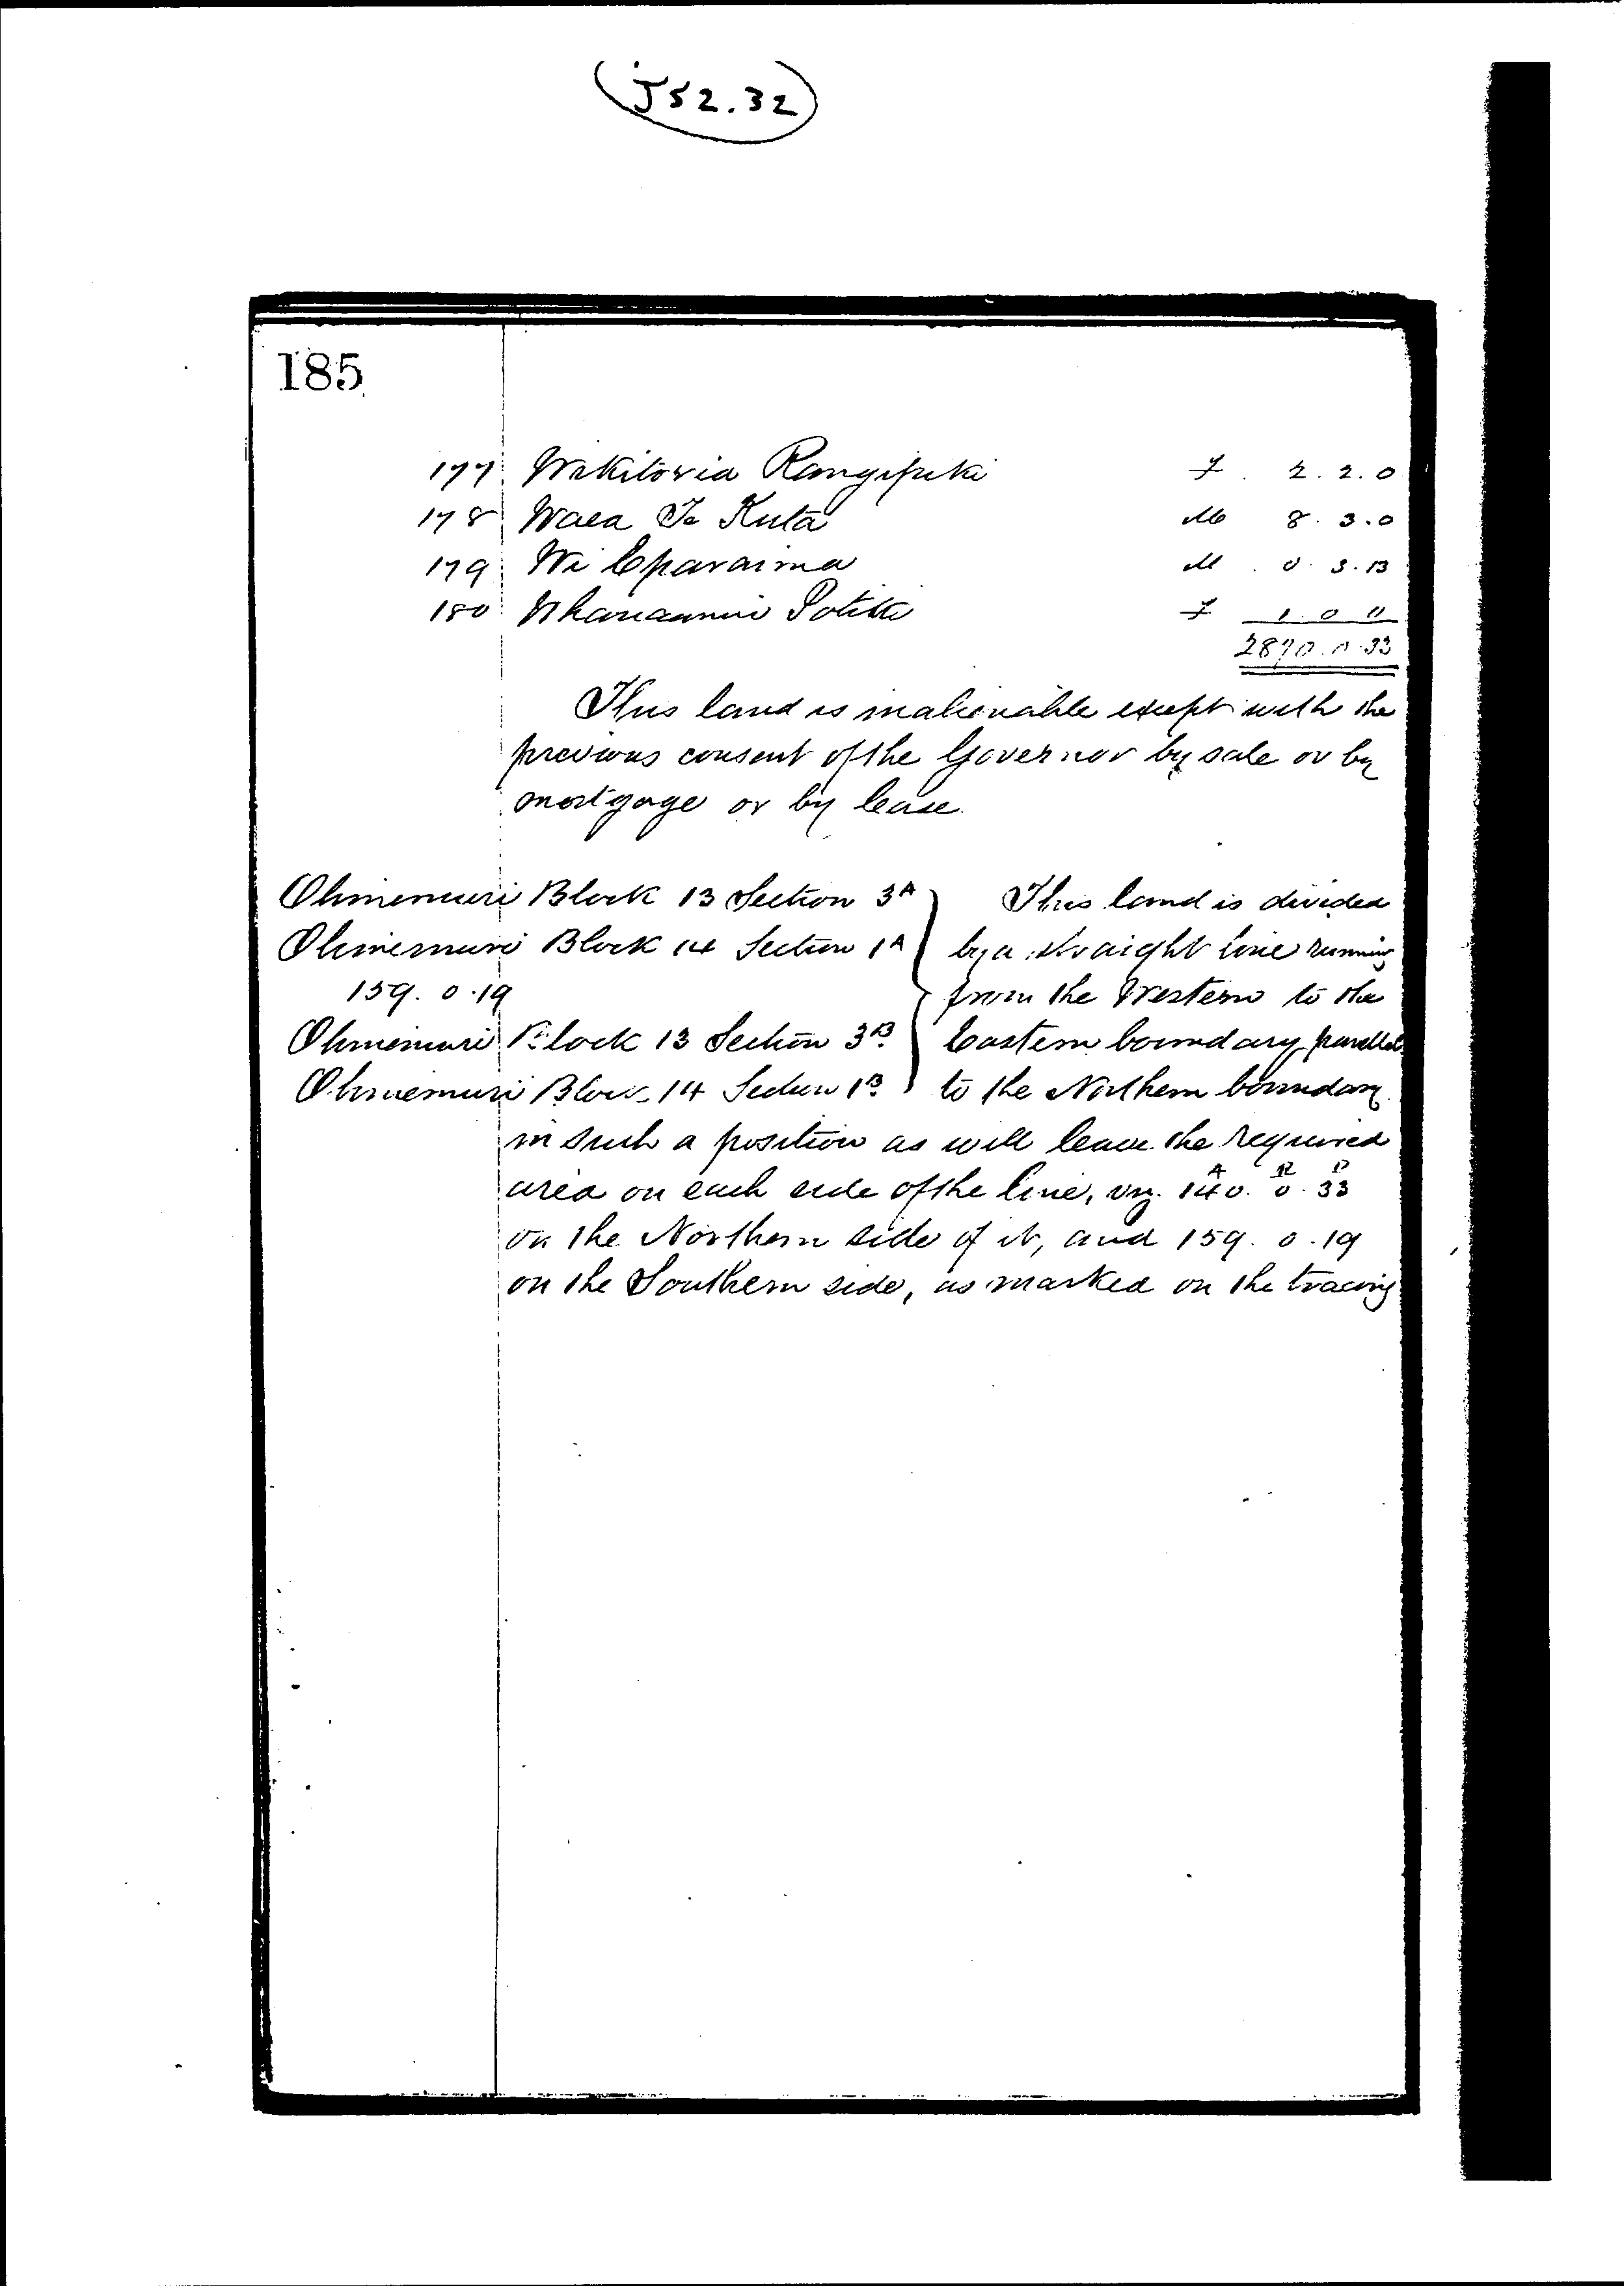 J52.32
185
177 Wikitoria Rangipiki F. 2.2.0
178 Waea Te Kuta M 8.3.0
179 Wi Eparaima M. 0.3.13
180 Potiki F 1.0.0
2870.0.33
This land is inalienable except with the
previous consent of the Governor by sale or by
mortgage or by lease.
Ohinemuri Block 13 Section 3A } This land is divided
Ohinemuri Block 14 Section 1A by a straight line running
159.0.19 from the Western to the
Ohinemuri Block 13 Section 3B Eastern boundary parallel
Ohinemuri Block 14 Section 1B to the Northern boundary
in such a position as will leave the required
area on each side of the line, viz. 140. 0. 33
on the Northern side of it, and 159. 0. 19
on the Southern side, as marked on the tracing